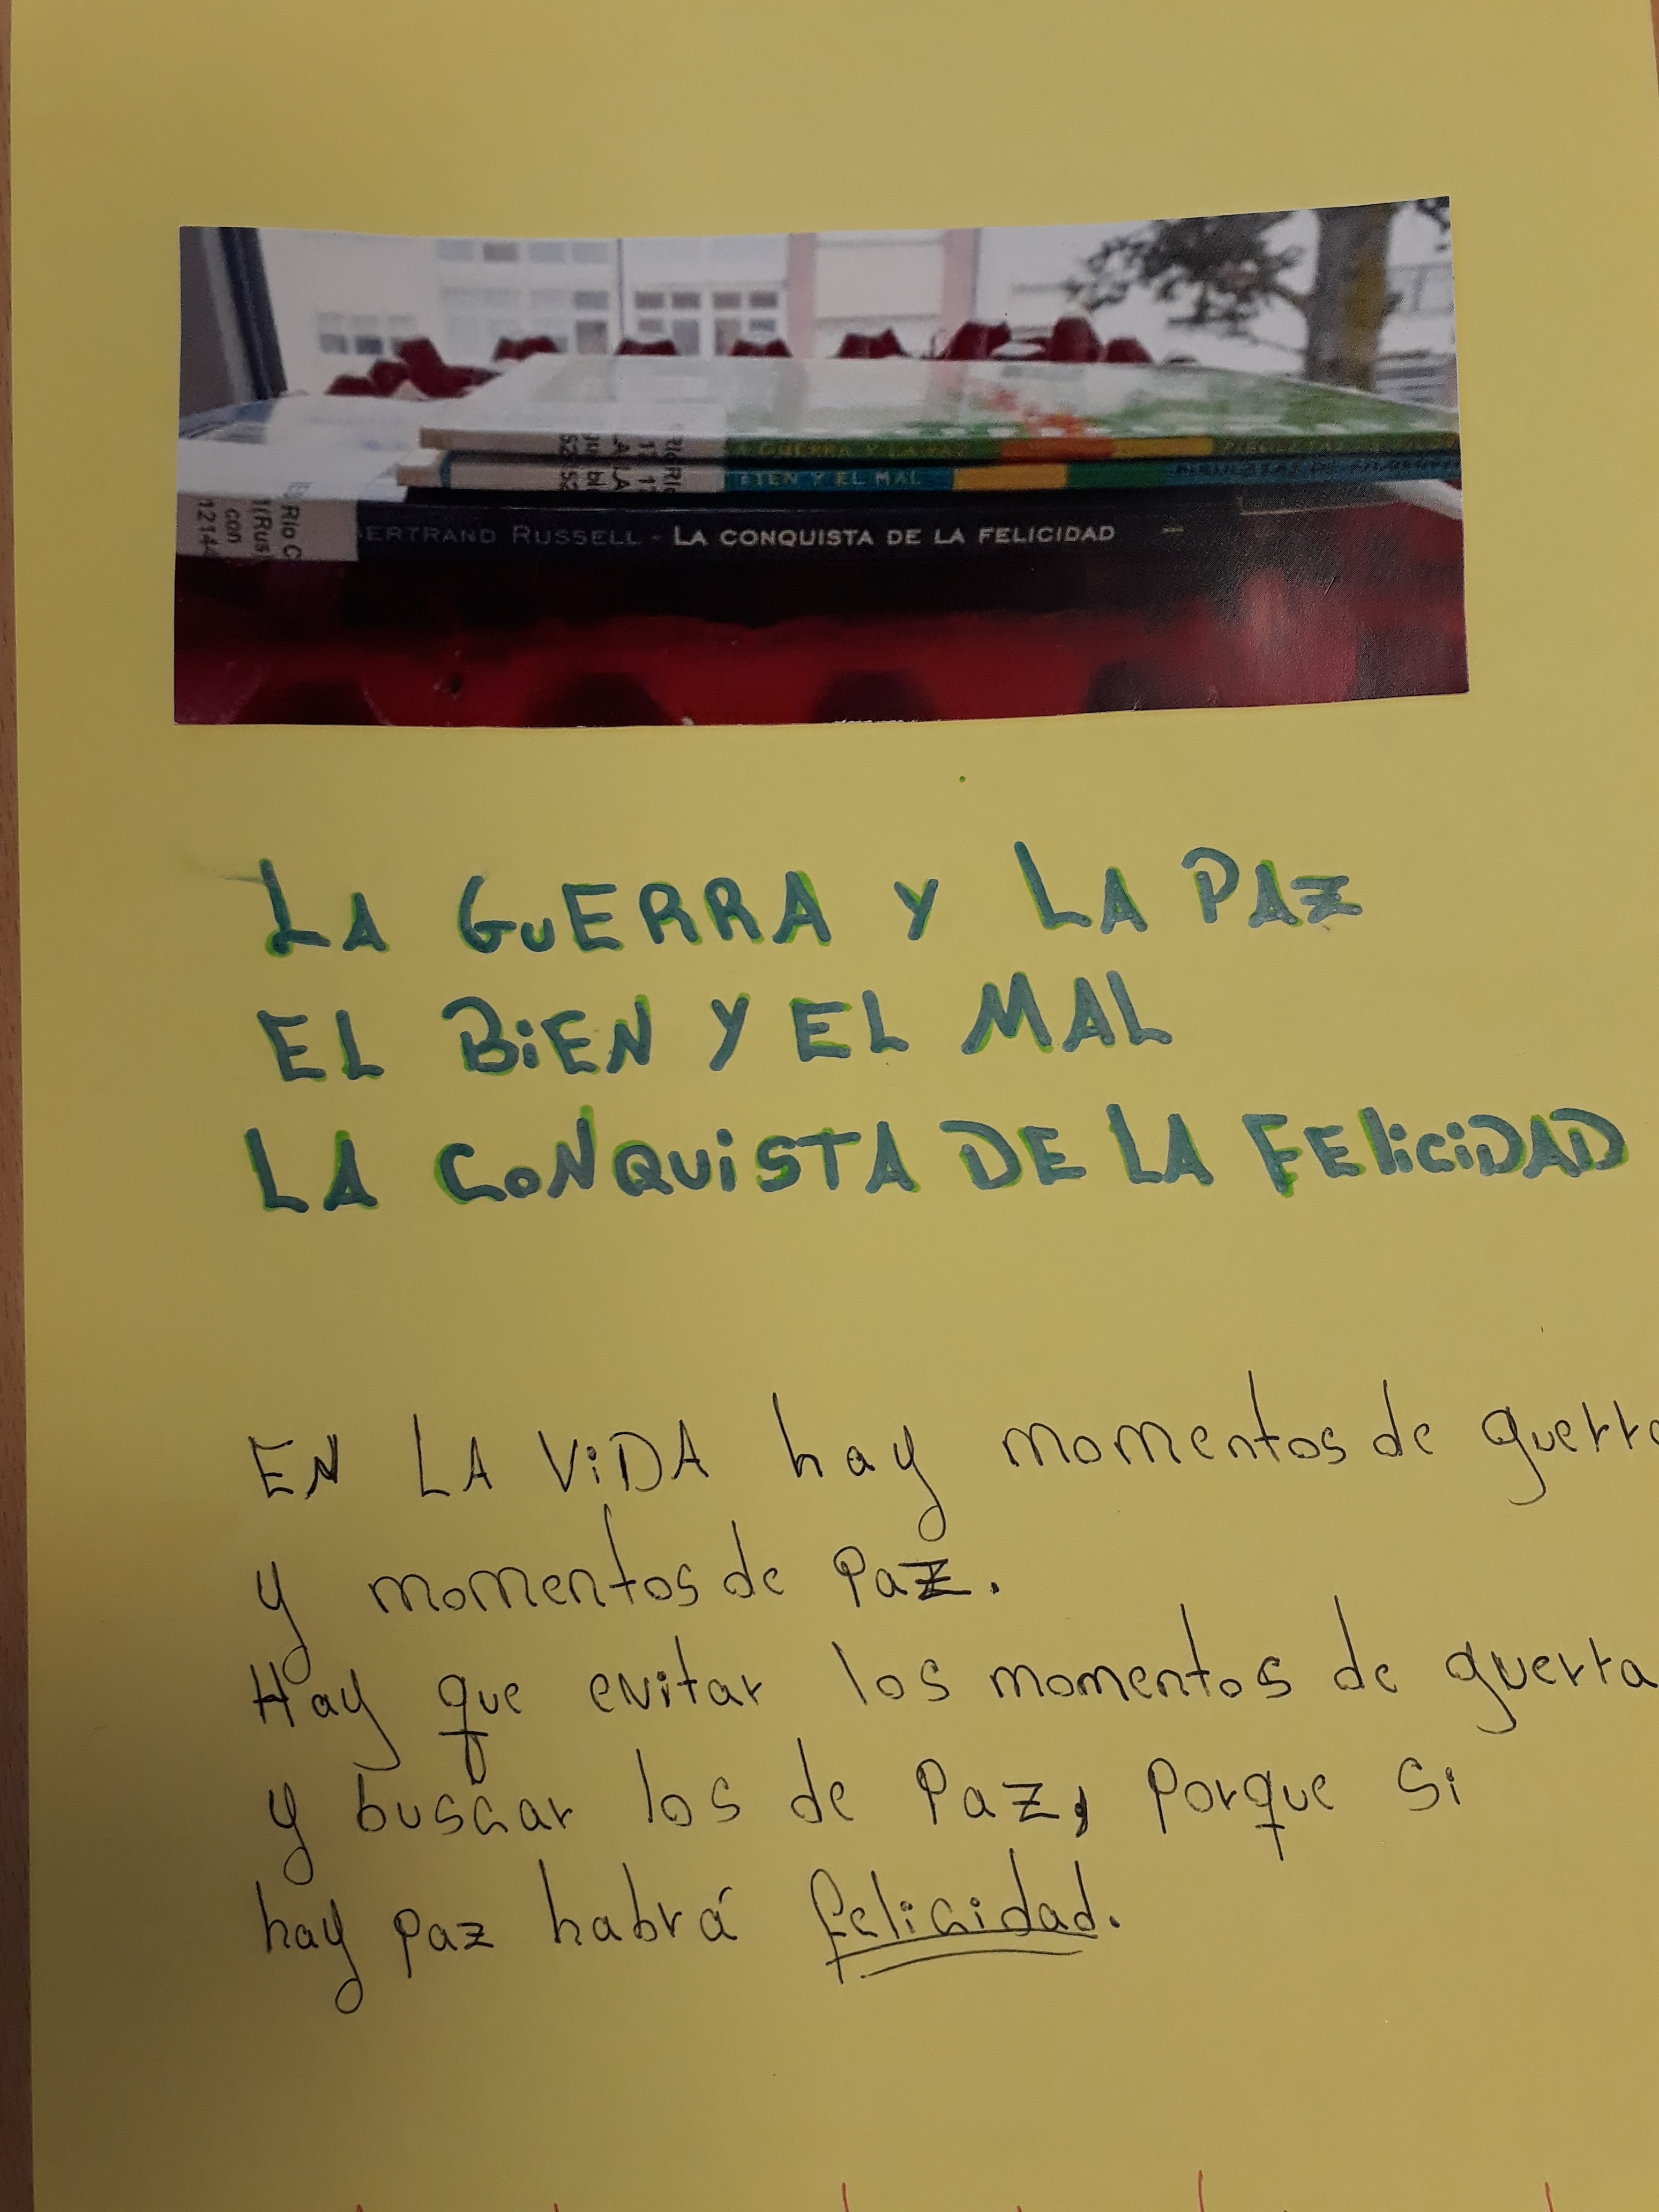 GUERRA Y LA PAZ
BIEN Y EL MAL
BERTRAND RUSSELL - LA CONQUISTA DE LA FELICIDAD
Río C
1(Rus
con
1214
LA GUERRA Y LA PAZ
EL BIEN Y EL MAL
LA CONQUISTA DE LA FELICIDAD
EN LA VIDA hay momentos de guerra
y momentos de Paz.
Hay que evitar los momentos de guerra
y buscar los de Paz, porque si
hay paz habrá felicidad.